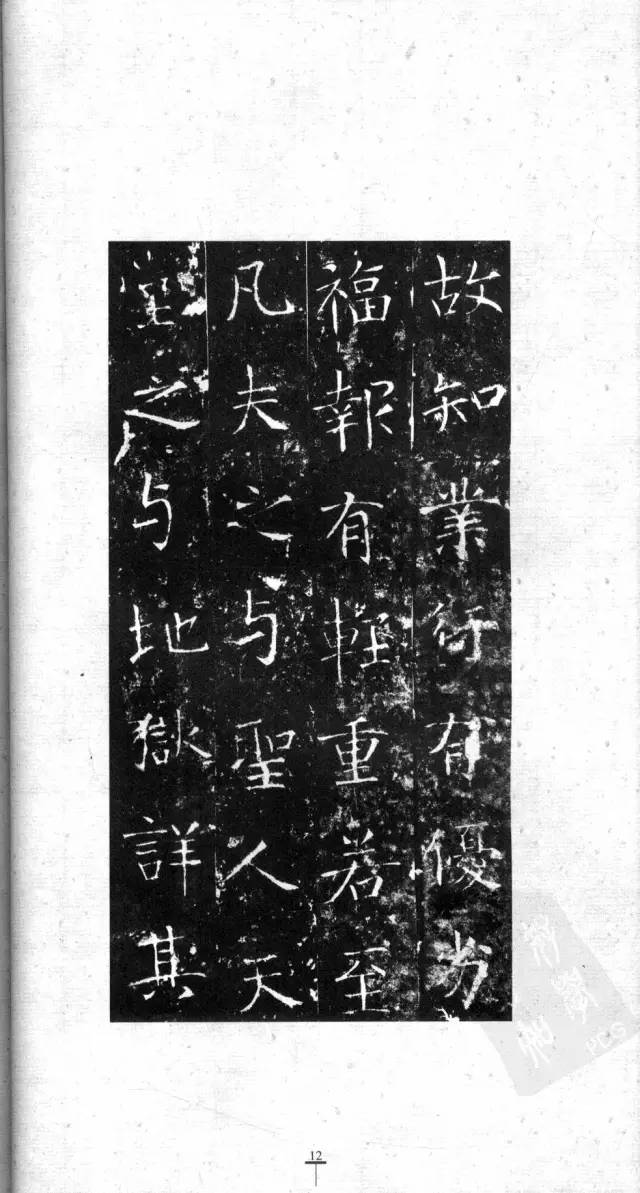 故知業行有優劣
福報有輕重若至
凡夫之与聖人天
堂之与地獄詳其
12
PCG